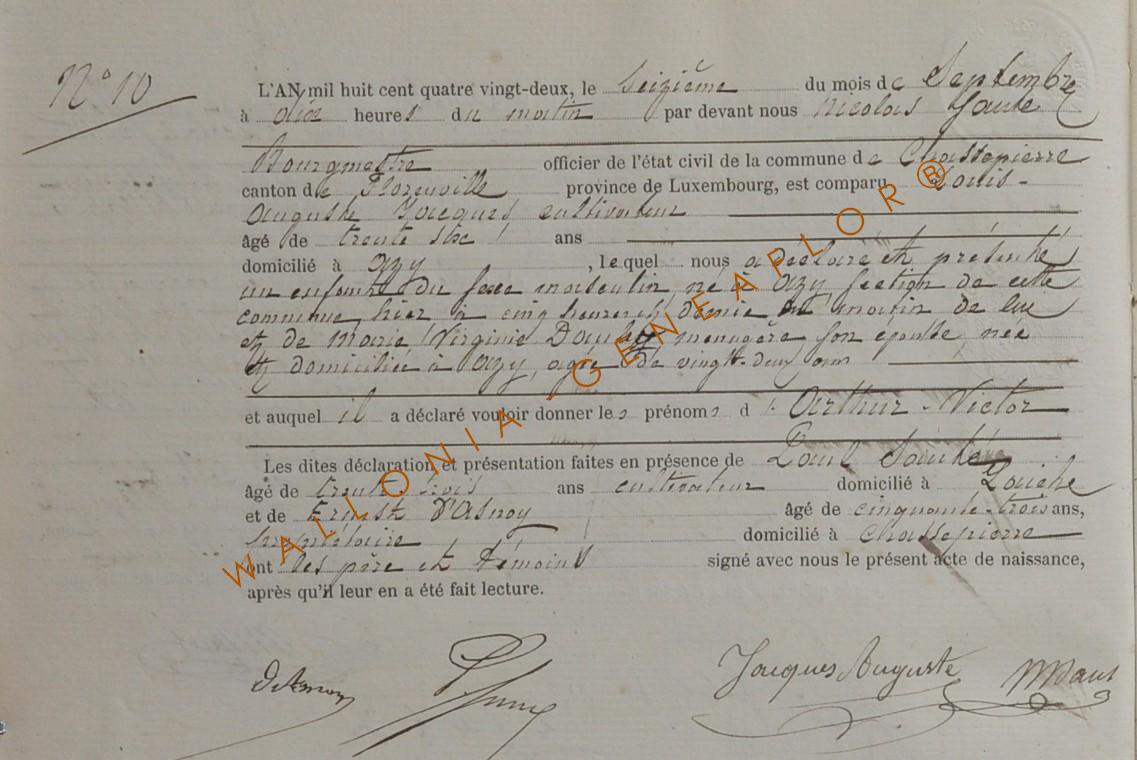 N° 10
L'AN mil huit cent quatre vingt-deux, le Seizième du mois de Septembre
à dix heures du matin par devant nous Nicolas
Bourgmestre officier de l'état civil de la commune de Chassepierre
canton de Florenville province de Luxembourg, est comparu Louis-
Auguste Jacques cultivateur
âgé de trente six ans
domicilié à Azy, lequel nous a déclaré et présenté
un enfant du sexe masculin né à Azy section de cette
commune, hier à cinq heures et demie du matin de lui
et de Marie Virginie ménagère son épouse née
et domiciliée à Azy, agée de vingt-deux ans
et auquel il a déclaré vouloir donner les prénoms d'Arthur-Victor
Les dites déclaration et présentation faites en présence de Paul
âgé de trente trois ans cultivateur domicilié à
et de Ernest d'Asnoy âgé de cinquante-trois ans,
propriétaire domicilié à Chassepierre
ont les père et témoins signé avec nous le présent acte de naissance,
après qu'il leur en a été fait lecture.
Jacques Auguste
WALLONIA - GENEAPLOR ®